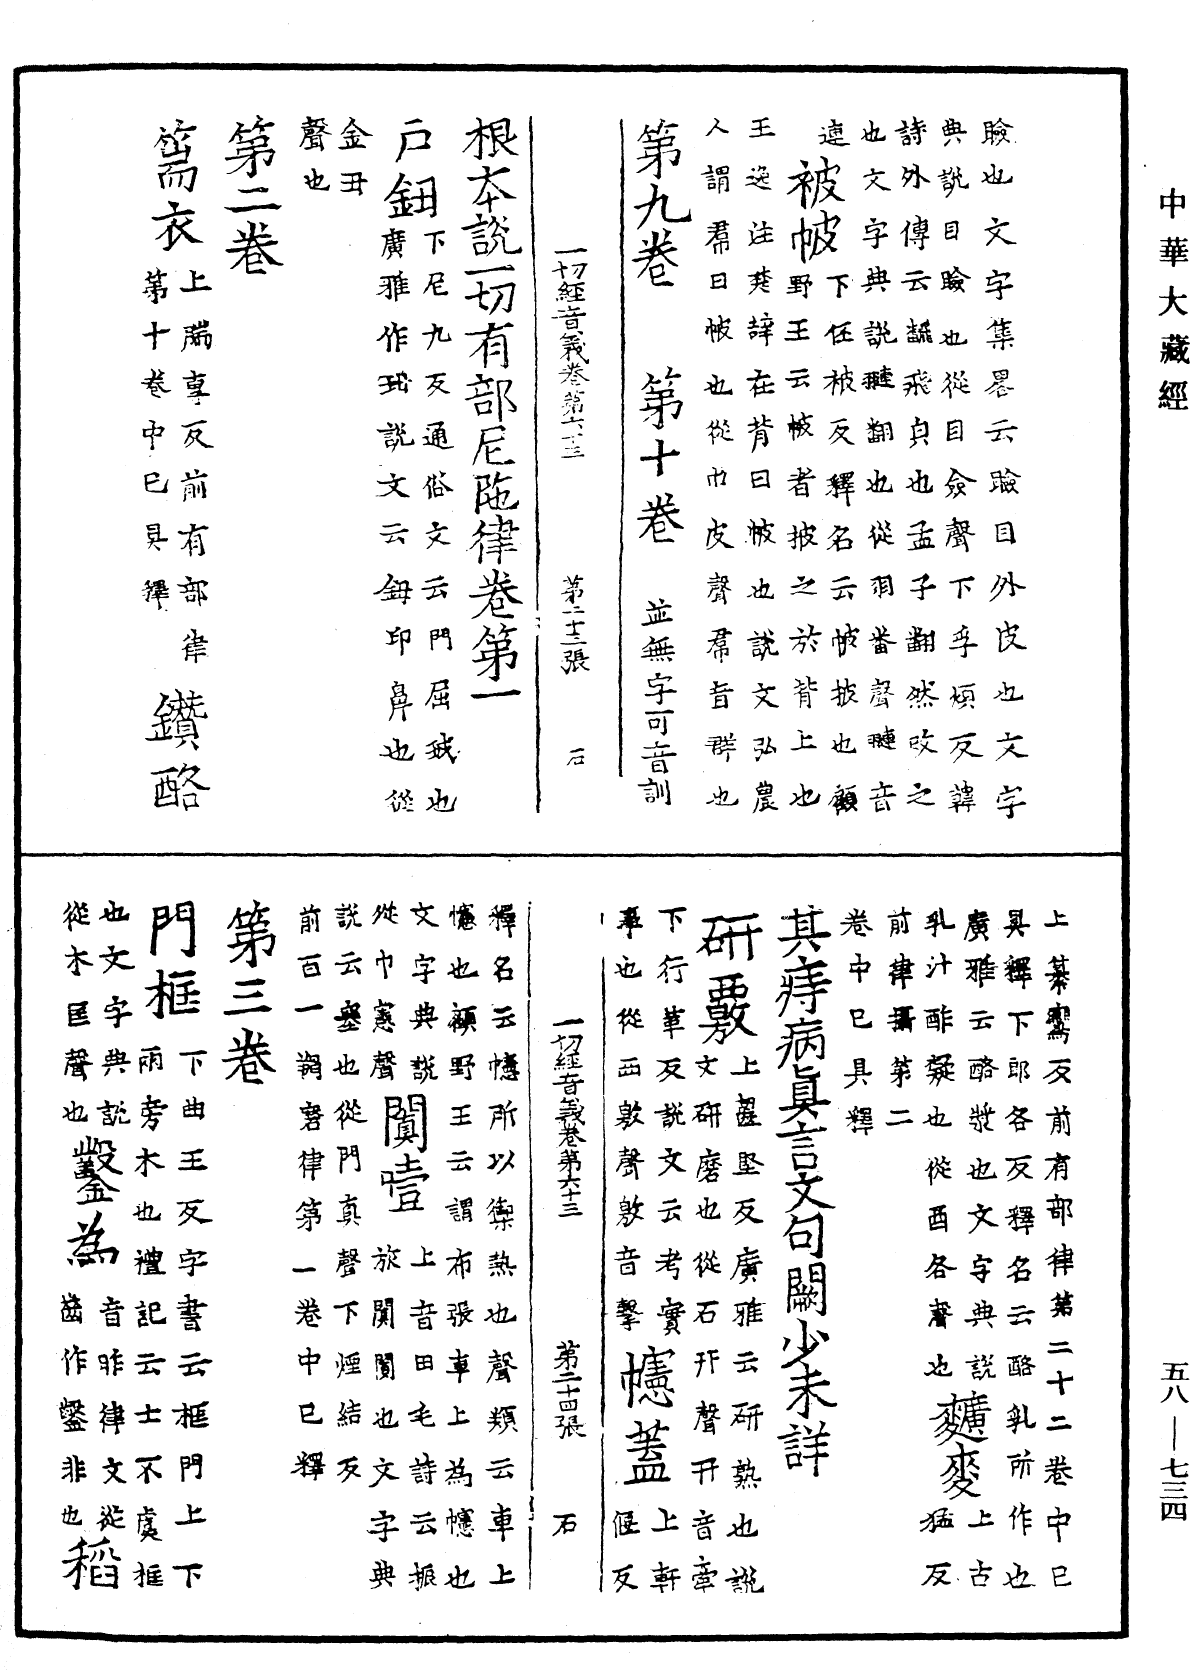 中華大藏經
瞼也文字集畧云瞼目外皮也文字
典說目瞼也從目僉聲下孚煩反韓
詩外傳云翻飛皃也孟子翻然改之
也文字典說翴翻也從羽番聲翴音
連
被帔
下任被反釋名云帔披也顧
野王云帔者披之於背上也
王逸注楚辭在背曰帔也說文弘農
人謂帬曰帔也從巾皮聲帬音群也
第九卷 第十卷 並無字可音訓
一切經音義卷第六十三 第二十三張 石
根本說一切有部尼陁律卷第一
戶鈕
下尼九反通俗文云門屈戌也
廣雅作玨說文云鈕印鼻也從
金丑
聲也
第二卷
篅衣
上腨專反前有部律
第十卷中已具釋
鑽酪
上纂鸞反前有部律第二十二卷中已
具釋下郎各反釋名云酪乳所作也
廣雅云酪漿也文字典說
乳汁酢凝也從酉各聲也
䴢麥
上古
猛反
前律攝第二
卷中已具釋
其痔病真言文句闕少未詳
研覈
上齧堅反廣雅云研熟也說
文研磨也從石幵聲幵音牽
下行革反說文云考實
事也從襾敫聲敫音擊
幰蓋
上軒
偃反
一切經音義卷第六十三 第二十四張 石
釋名云幰所以禦熱也聲類云車上
幰也顧野王云謂布張車上為幰也
文字典說
從巾憲聲
闐噎
上音田毛詩云振
旅闐闐也文字典
說云塞也從門真聲下煙結反
前百一羯磨律第一卷中已釋
第三卷
門框
下曲王反字書云框門上下
兩旁木也禮記云士不虞框
也文字典說
從木匡聲也
鑿為
音昨律文從
齒作鑿非也
稻
五八—七三四